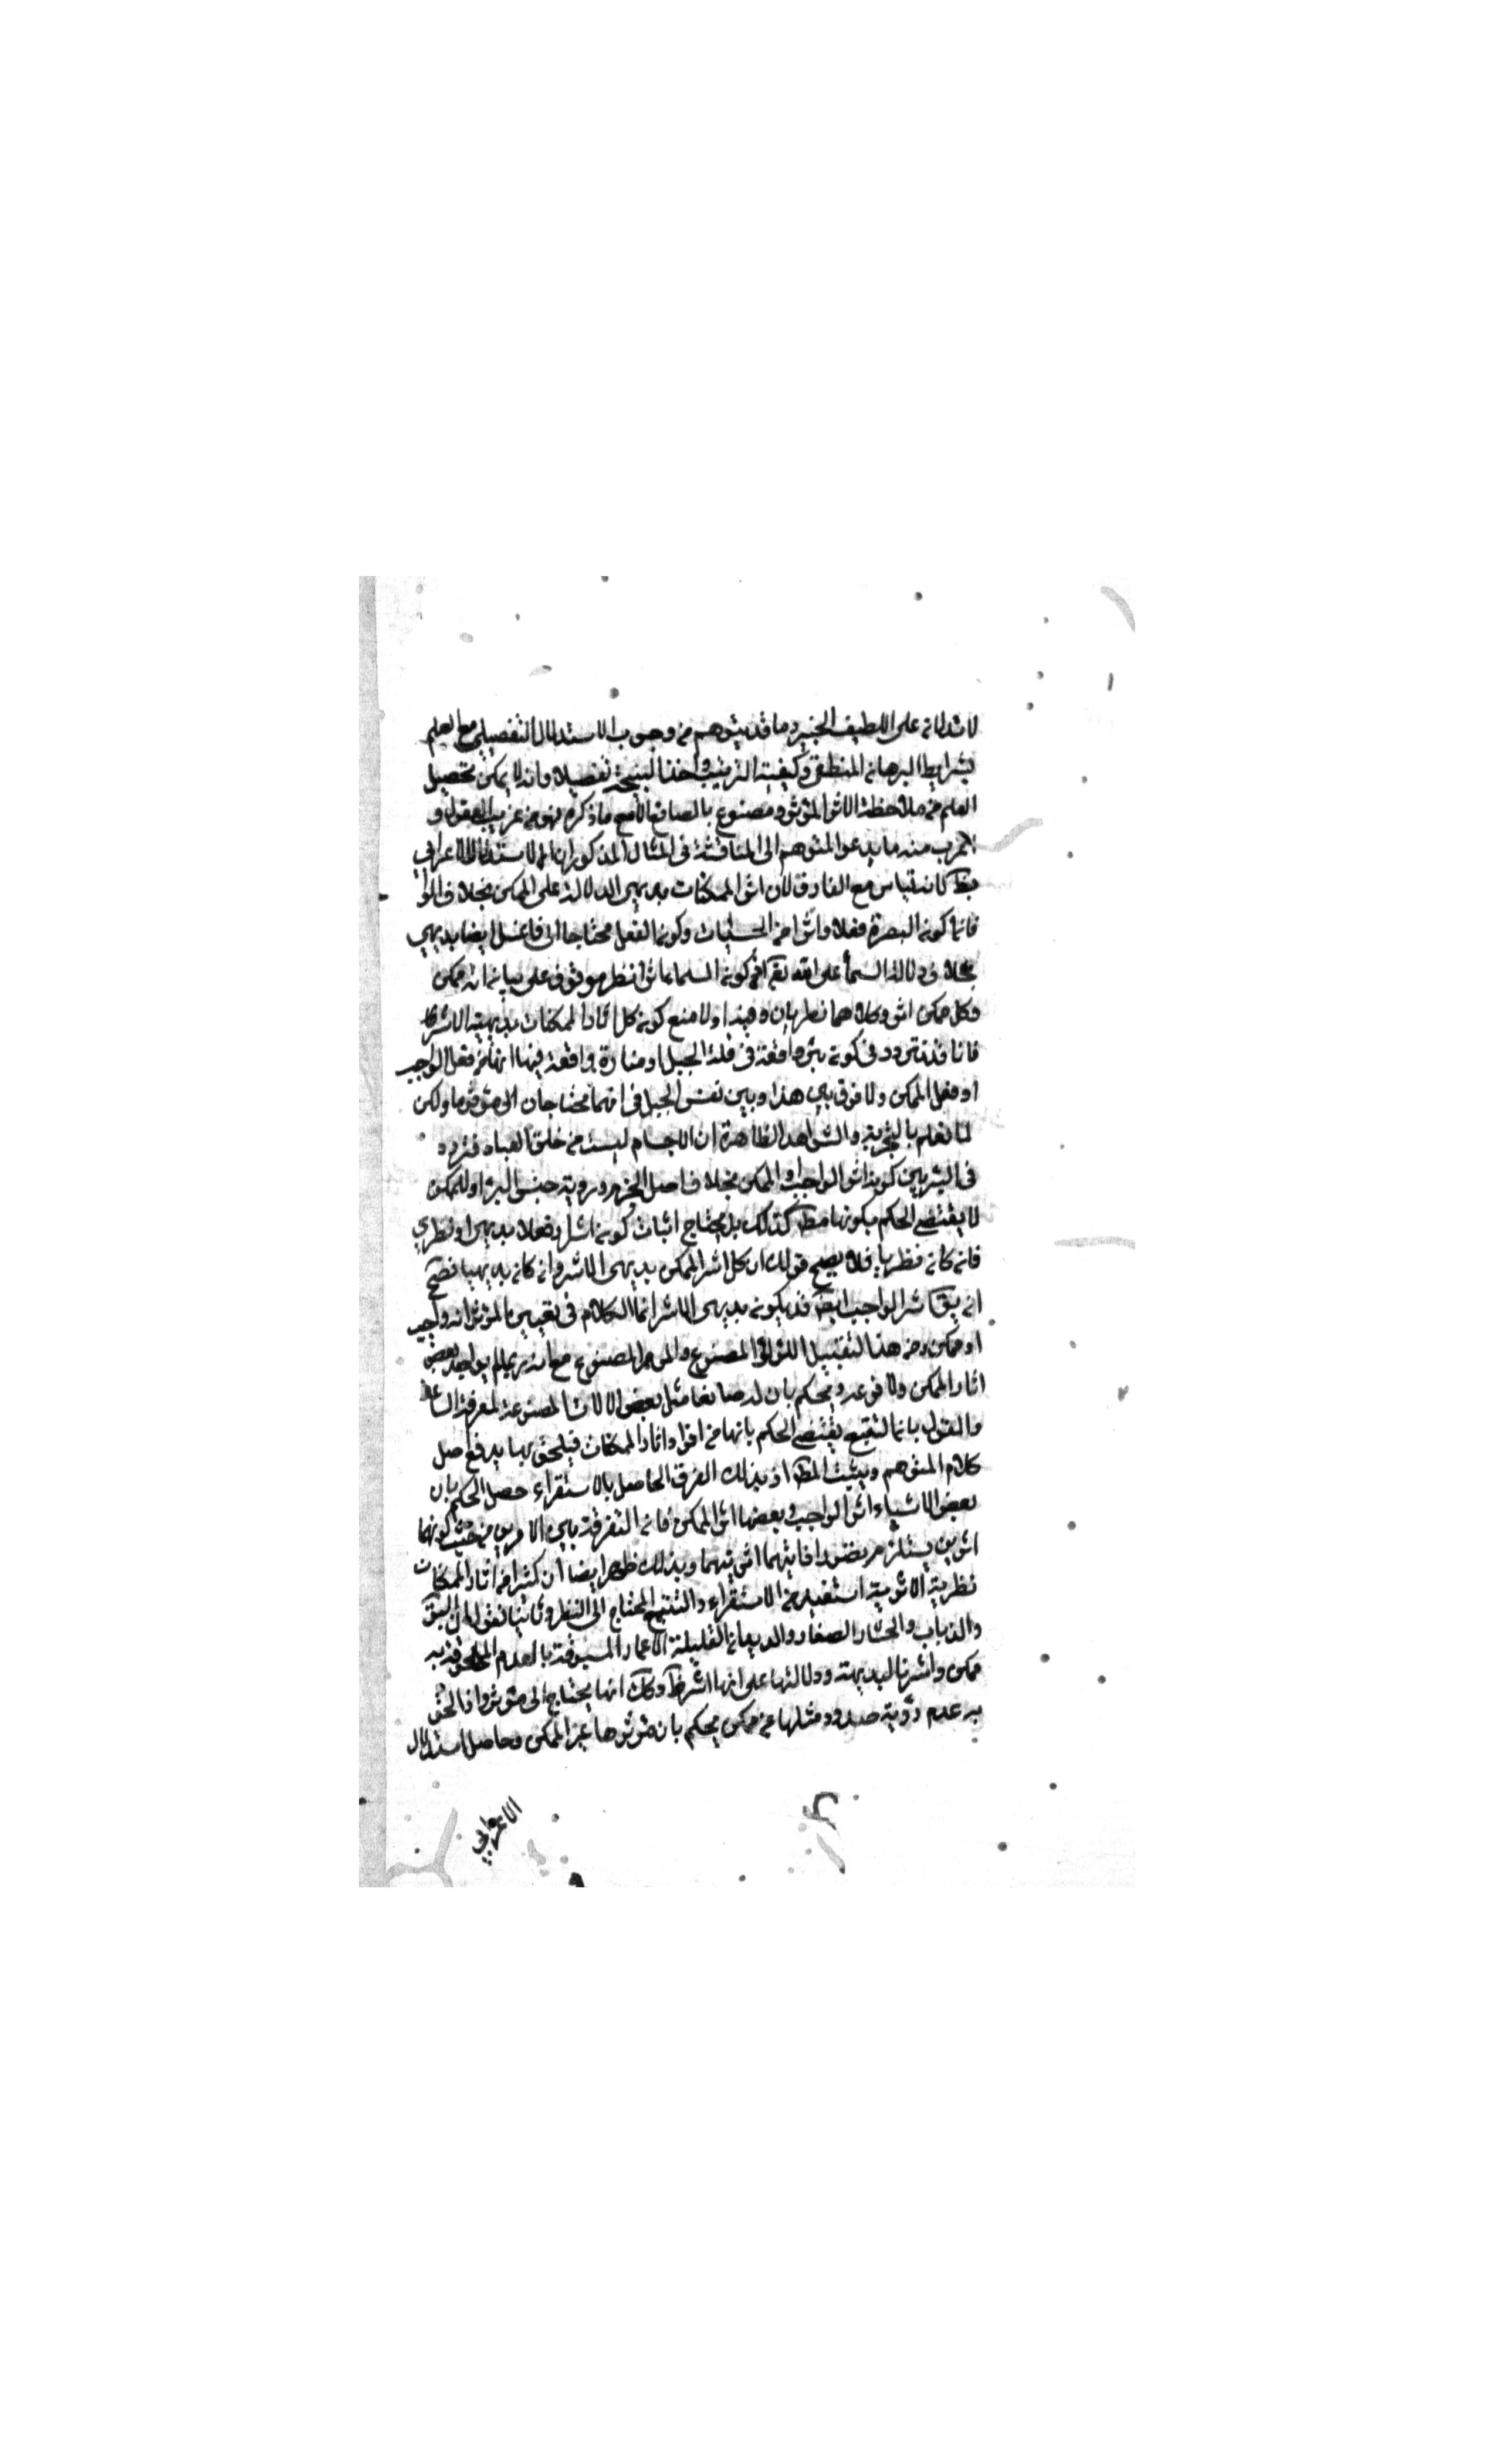 لا تدلان على اللطيف الخبير وما قد يتوهم من وجوب الاستدلال التفصيلي مع العلم
بشرايط البرهان المنطقي وكيفية الترتيب واخذ النتيجة تفصيلا وانه لا يمكن تحصيل
العلم من ملاحظة الاثر المؤثر ومصنوع بالصانع الا مع ما ذكره فهو من غريب القول و
اغرب منه ما يدعو المتوهم الى المناقشة في المثال المذكور ان الاستدلال الاعرابي
كانه قياس مع الفارق لان اثر الممكنات بديهي الدلالة على الممكن بخلاف الوا
فانما كون البعرة فعلا واثرا من الحسيات وكون الفعل محتاجا الى فاعل ايضا بديهي
بخلاف دلالة السماء على الله تع فان كون السماء اثرا نظر موقوف على بيان انه ممكن
وكل ممكن اثر وكلاهما نظريان وفيه اولا منع كون كل اثار الممكنات بديهية الاثرية
فانا قد نتردد في كون بئر واقعة في قلة الجبل او منارة واقعة فيها انها من فعل الواجب
او فعل الممكن ولا فرق بين هذا وبين نفس الجبل في انهما محتاجان الى مؤثر ما ولكن
لما نعلم بالتجربة والشواهد الظاهرة ان الاجسام ليست من خلق العباد فنردد
في البئر بين كونه اثر الواجب او الممكن بخلاف اصل الحجر ورؤية جنس البئر او للممكن
لا يقتضي الحكم بكونها مط كذلك بل يحتاج اثبات كونه اثرا وفعلا بديهي او نظري
فان كان نظريا فلا يصح قولك ان كل اثر الممكن بديهي الاثر وان كان بديهيا فصح
ان يق اثر الواجب ايض قد يكون بديهي الاثر انما الكلام في تعيين المؤثر انه واجب
او ممكن ومن هذا القبيل اللؤلؤ المصنوع والمرمر المصنوع مع انه يعلم بواحد بعض
اثار الممكن ولا نوعه ويحكم بان له صانعا مثل بعض الالات المصنوعة لمعرفة الساعة
والقول بان التتبع يقتضي الحكم بانها من افراد اثار الممكنات فيلحق بها يدفع اصل
كلام المتوهم ويثبت المط اذ بذلك الفرق الحاصل بالاستقراء حصل الحكم بان
بعض الاشياء اثر الواجب وبعضها اثر الممكن فان التفرقة بين الامرين من حيث كونهما
اثرين يستلزم اثريتهما وبذلك ظهر ايضا ان كثيرا من اثار الممكنات
نظرية الاثرية استفيد من الاستقراء والتتبع المحتاج الى النظر وثانيا نقول ان البق
والذباب والحشار الصغار والديدان القليلة الاعمار المسبوقة بالعدم الملحوقة به
ممكن واثر بالبديهة ودلالتها على انها اثر ظ وكك انها يحتاج الى مؤثر واذا لحق
به عدم رؤية صدور مثلها عن ممكن يحكم بان مؤثرها غير الممكن وحاصل استدلال
الاعرابي